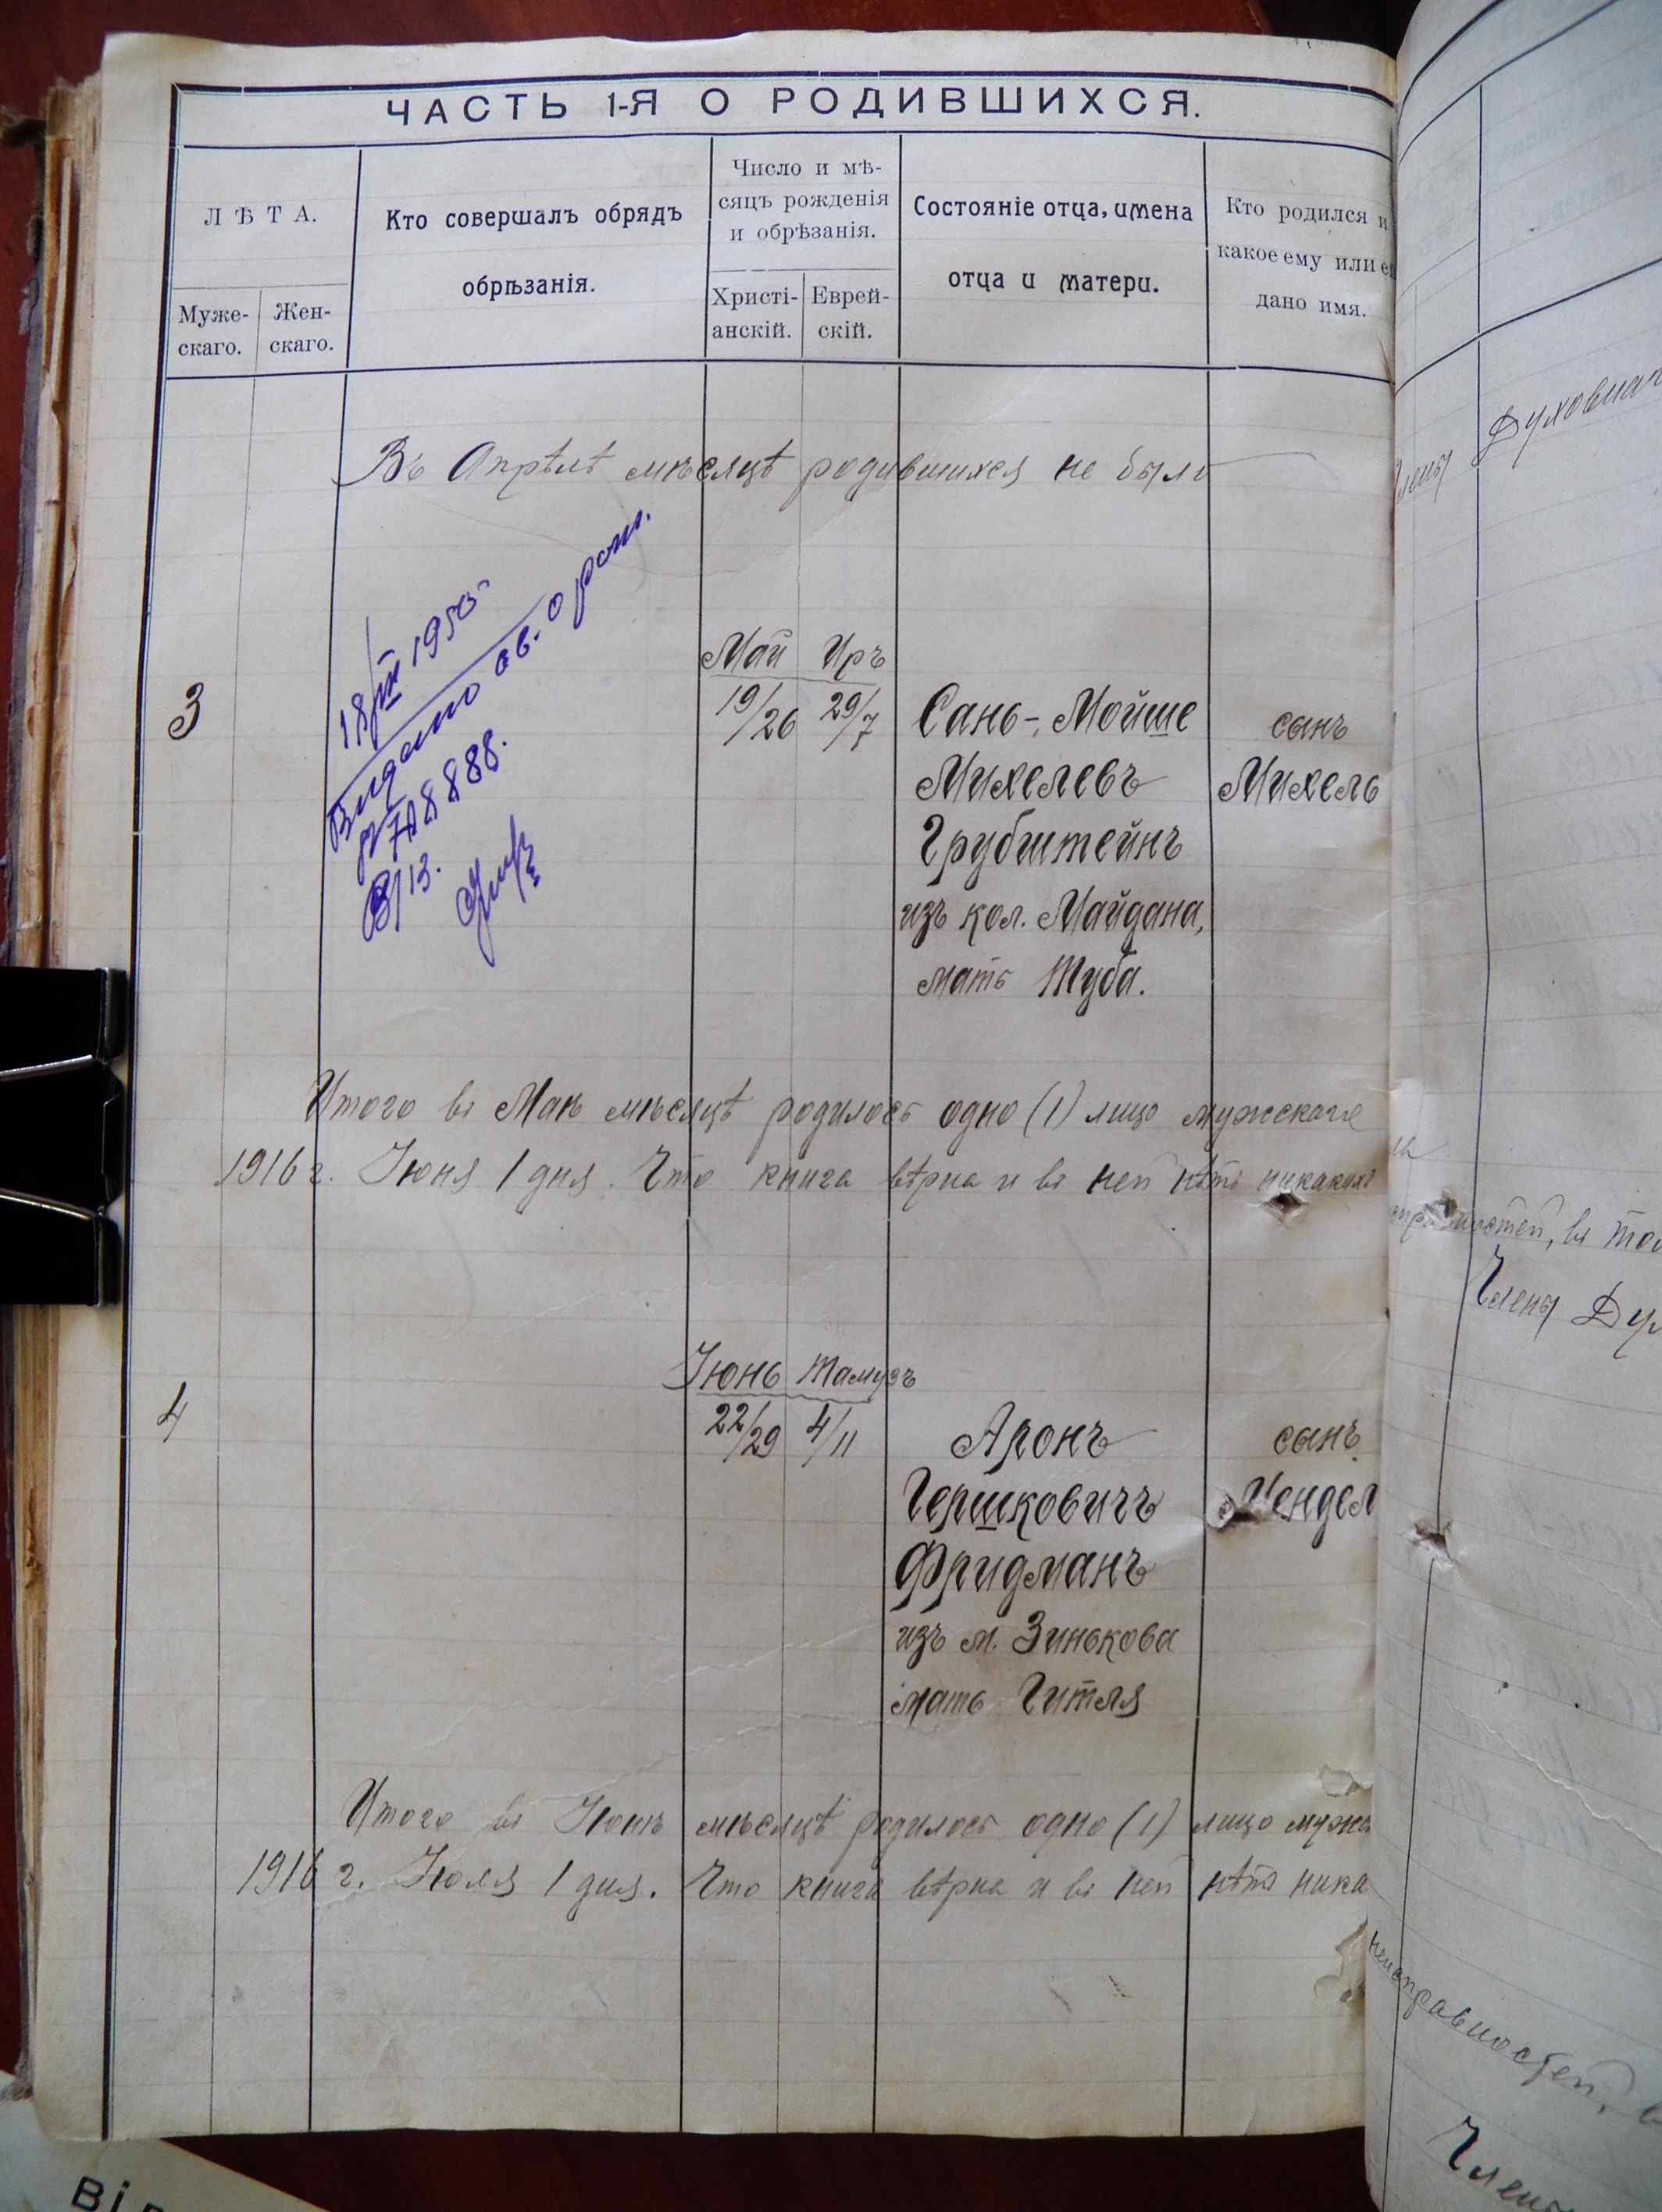 ЧАСТЬ 1-Я О РОДИВШИХСЯ.
ЛѢТА.
Муже-
скаго.
Жен-
скаго.
Кто совершалъ обрядъ
обрѣзанія.
Число и мѣ-
сяцъ рожденія
и обрѣзанія.
Христі-
анскій.
Еврей-
скій.
Состояніе отца, имена
отца и матери.
Кто родился и
какое ему или е
дано имя.
Въ Апрѣлѣ мѣсяцѣ родившихся не было
18/III 1950
Видано св. о рож.
8/13.
3
Май Иръ
19/26 29/7
Сань-Мойше
Михелевъ
Грубштейнъ
изъ кол. Майдана,
мать Туба.
сынъ
Михель
Итого въ Маѣ мѣсяцѣ родилось одно (1) лицо мужскаго
1916 г. Іюня 1 дня. Что книга вѣрна и въ ней нѣтъ никакихъ
4
Іюнь Тамузъ
22/29 4/11
Аронъ
Гершковичъ
Фридманъ
изъ м. Зинькова
мать Гитля
сынъ
Мендел
Итого въ Іюнѣ мѣсяцѣ родилось одно (1) лицо мужс
1916 г. Іюля 1 дня. Что книга вѣрна и въ ней нѣтъ ника
Духовнаг
Члены
Члены Дух
неисправностей, в
Члены
Ві